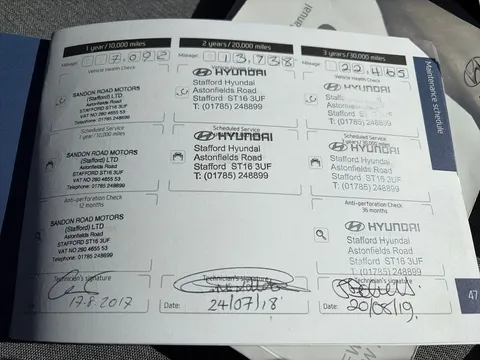 1 year/10,000 miles
Mileage: 7,092
Vehicle Health Check
SANDON ROAD MOTORS
(Stafford) LTD
Astonfields Road
STAFFORD ST16 3UF
VAT NO 280 4655 53
Telephone: 01785 248899
Scheduled Service
1 year / 10,000 miles
SANDON ROAD MOTORS
(Stafford) LTD
Astonfields Road
STAFFORD ST16 3UF
VAT NO 280 4655 53
Telephone: 01785 248899
Anti-perforation Check
12 months
SANDON ROAD MOTORS
(Stafford) LTD
Astonfields Road
STAFFORD ST16 3UF
VAT NO 280 4655 53
Telephone: 01785 248899
Technician's signature
17.8.2017
2 years/20,000 miles
Mileage: 13,738
Vehicle Health Check
HYUNDAI
Stafford Hyundai
Astonfields Road
Stafford ST16 3UF
T: (01785) 248899
Scheduled Service
HYUNDAI
Stafford Hyundai
Astonfields Road
Stafford ST16 3UF
T: (01785) 248899
Technician's signature
Date: 24/07/18
3 years/30,000 miles
Mileage: 22,465
Vehicle Health Check
HYUNDAI
Stafford
Astonfields Road
Stafford ST16 3UF
T: (01785) 248899
Scheduled Service
HYUNDAI
Stafford Hyundai
Astonfields Road
Stafford ST16 3UF
T: (01785) 248899
Anti-perforation Check
36 months
HYUNDAI
Stafford Hyundai
Astonfields Road
Stafford ST16 3UF
T: (01785) 248899
Technician's signature
Date: 20/08/19.
Maintenance schedule
47
Manual